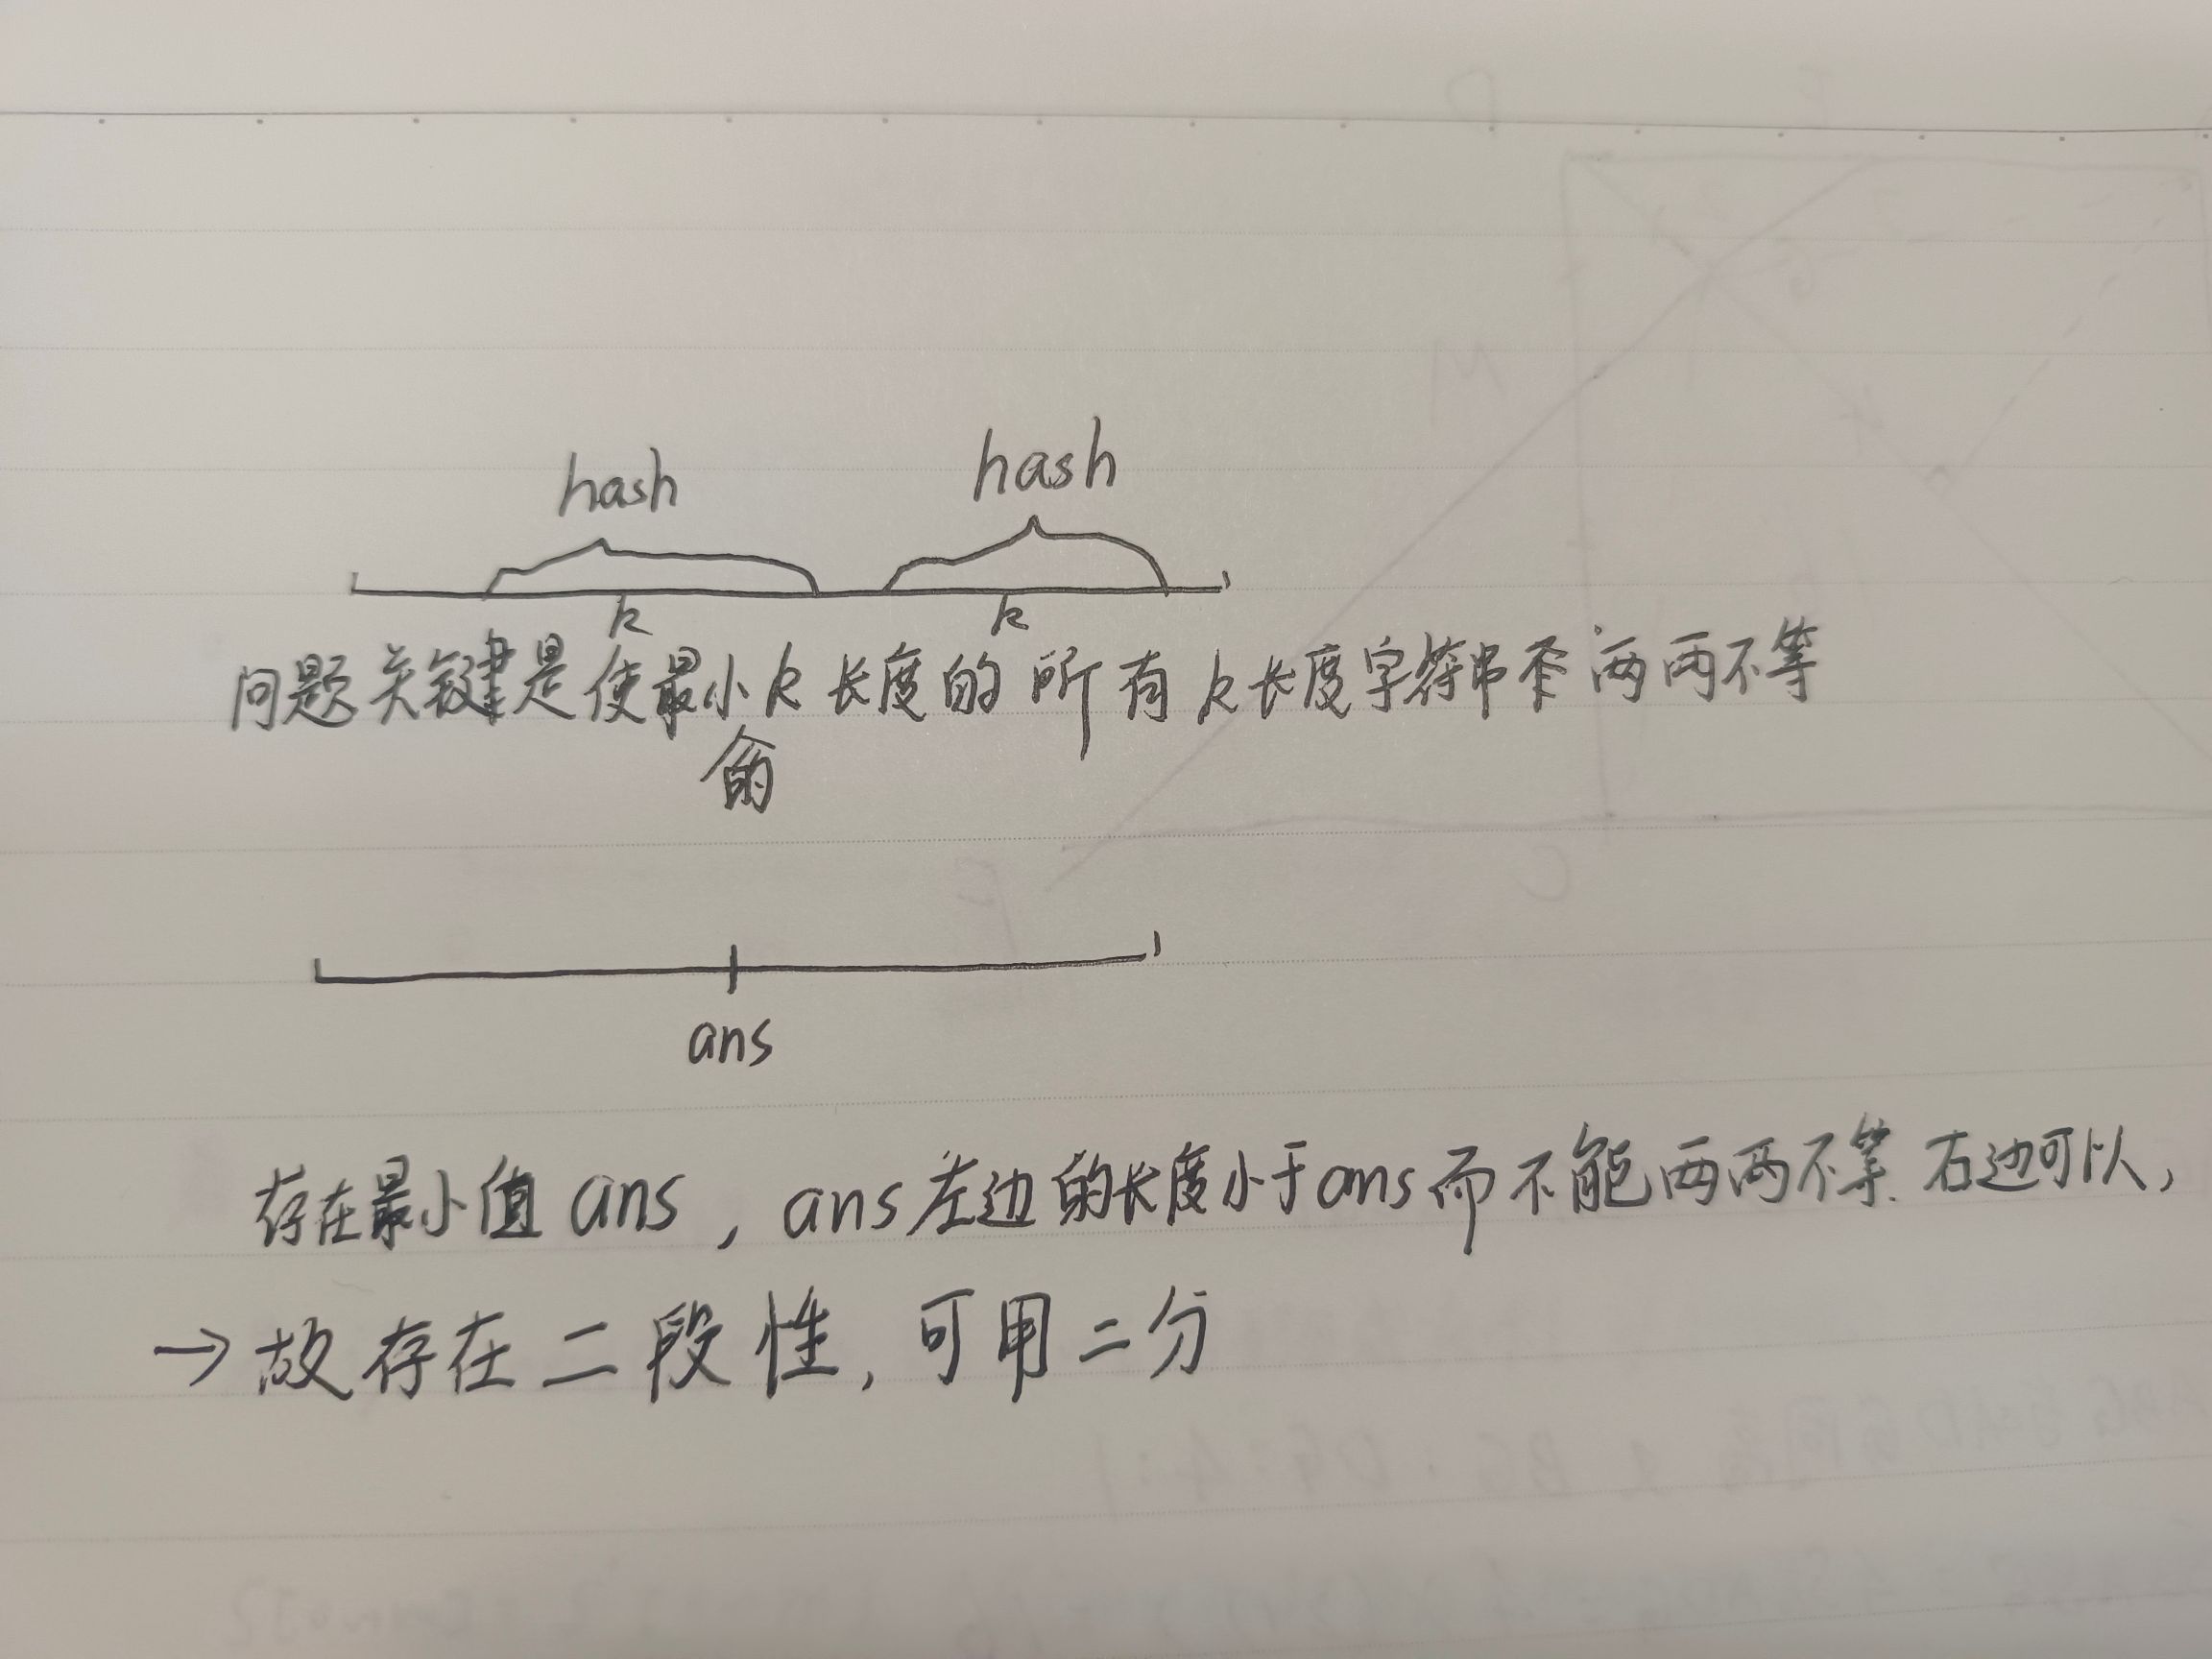 hash hash
k k
问题关键是使最小k长度的所有k长度字符串 两两不等
的
ans
存在最小值ans，ans左边的长度小于ans而不能两两不等.右边可以，
→故存在二段性，可用二分